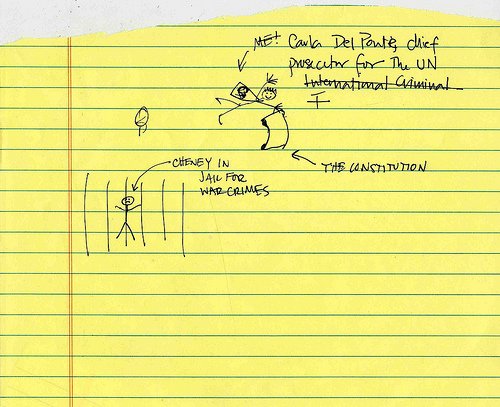 ME + Carla Del Ponte, chief
prosecutor for The UN
International Criminal
T
THE CONSTITUTION
CHENEY IN
JAIL FOR
WAR CRIMES